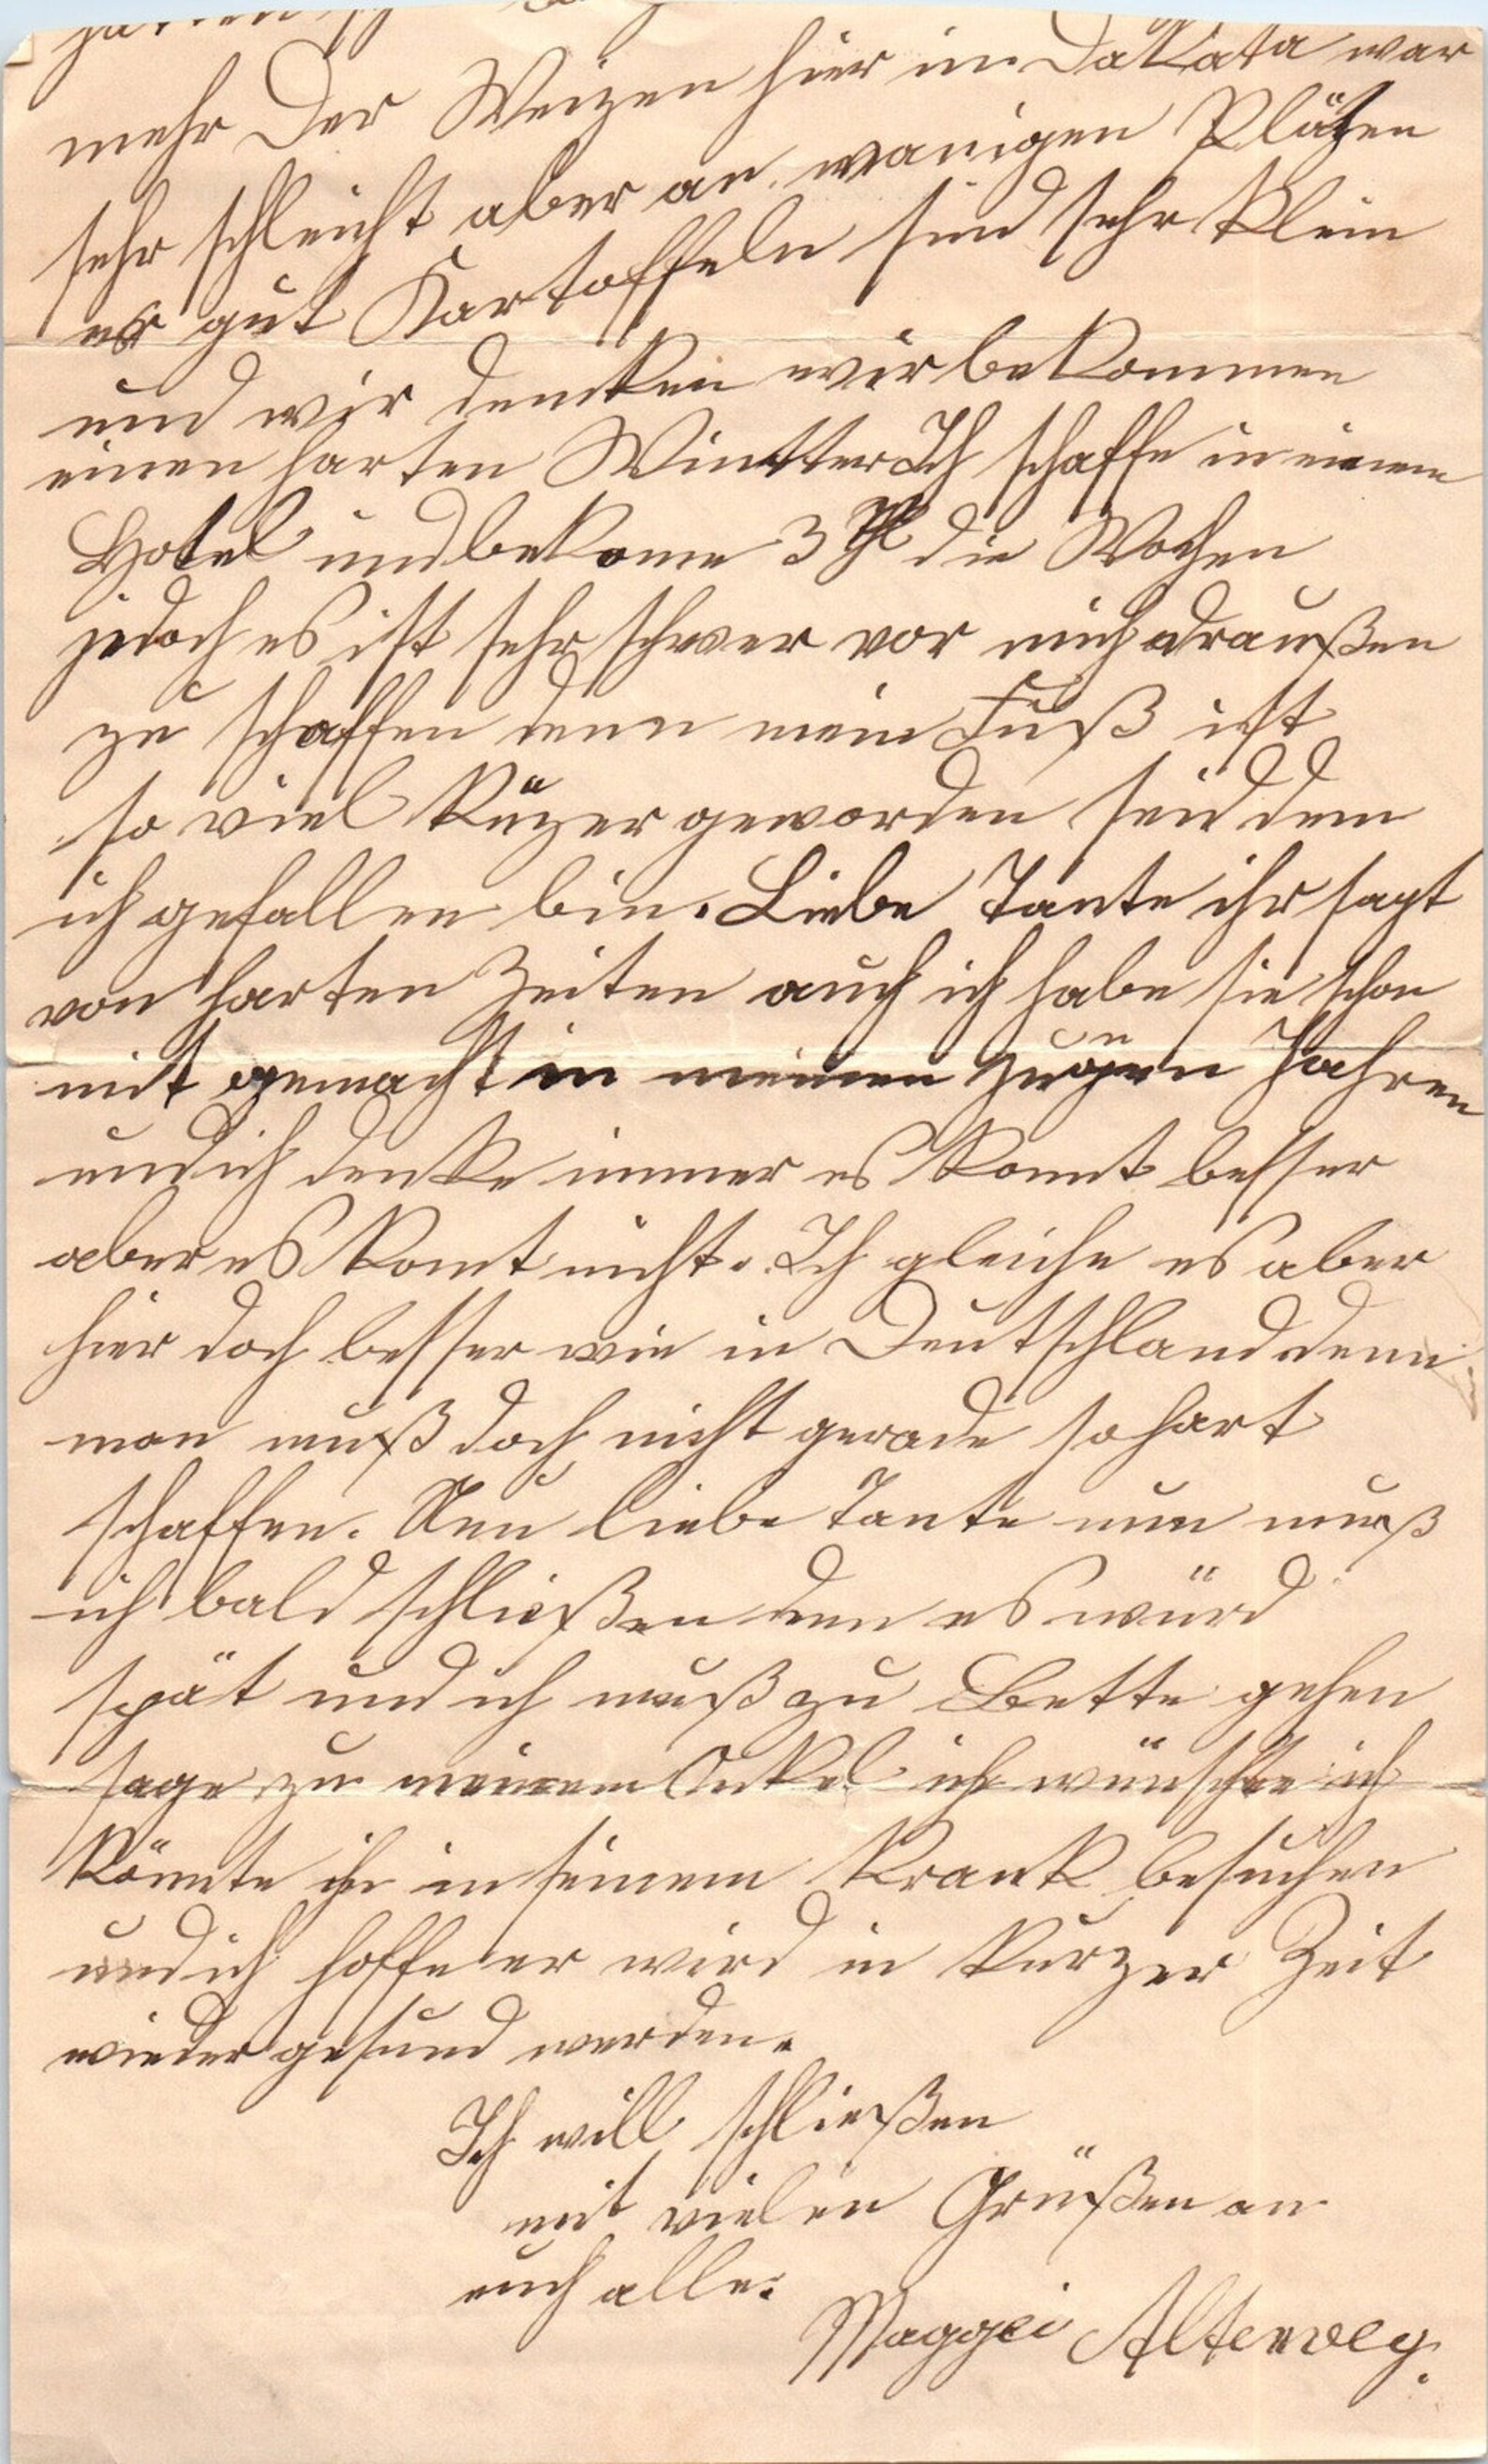 mehr Der Weizen hier in Dakata war
sehr schleicht aber an wanigen Pläzen
es gut Kartoffeln sind sehr klein
und wir denken wir bekommen
einen harten Wintter Ich schaffe in einem
Hotel und bekome 3 die Wochen
jedoch es ist sehr schwer vor mich draußen
zu schaffen denn mein Fuß ist
so viel küzer geworden seid dem
ich gefallen bin. Liebe Tante ihr sagt
von harten Zeiten auch ich habe sie schon
mit gemacht in meinen Jahren
und ich denke immer es komt besser
aber es komt nicht. Ich gleiche es aber
hier doch besser wie in Deutschland denn
man muß doch nicht gerade so hart
schaffen. Nun liebe Tante nun muß
ich bald schließen den es würd
spät und ich muß zu Bette gehen
sage zu meinem Onkel ich wünschte ich
könnte ihn in seinem krank besuchen
und ich hoffe er wird in kurzer Zeit
wieder gesund werden.
Ich will schließen
mit vielen Grüßen an
euch alle.
Maggei Alterweg.